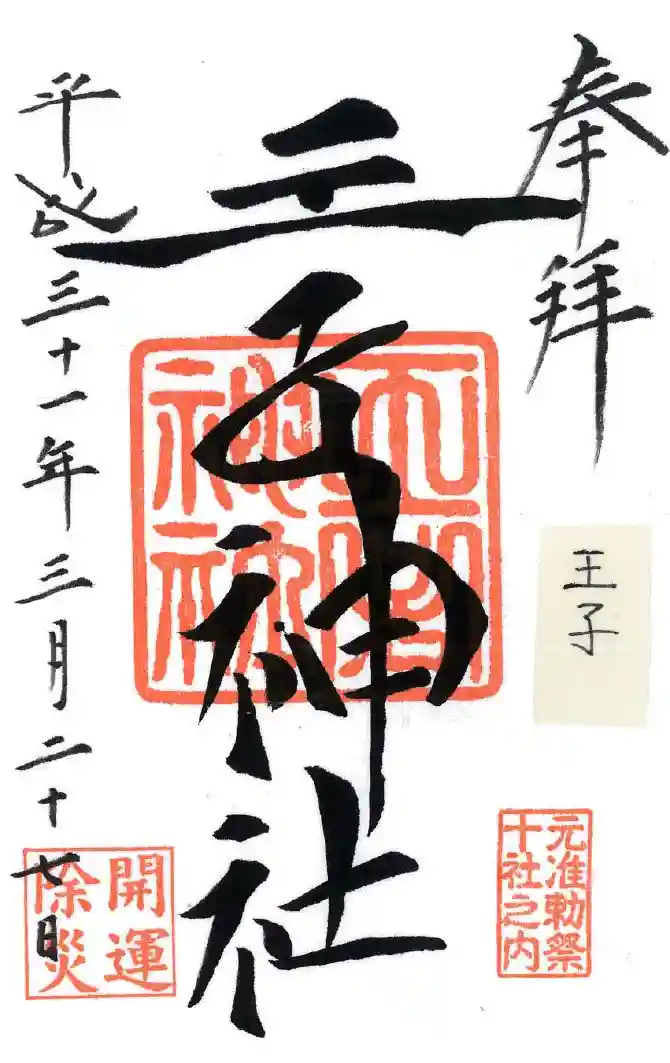 奉拝
王子
元准勅祭
十社之内
王子神社
王子
神社
平成三十一年三月二十七日
開運
除災